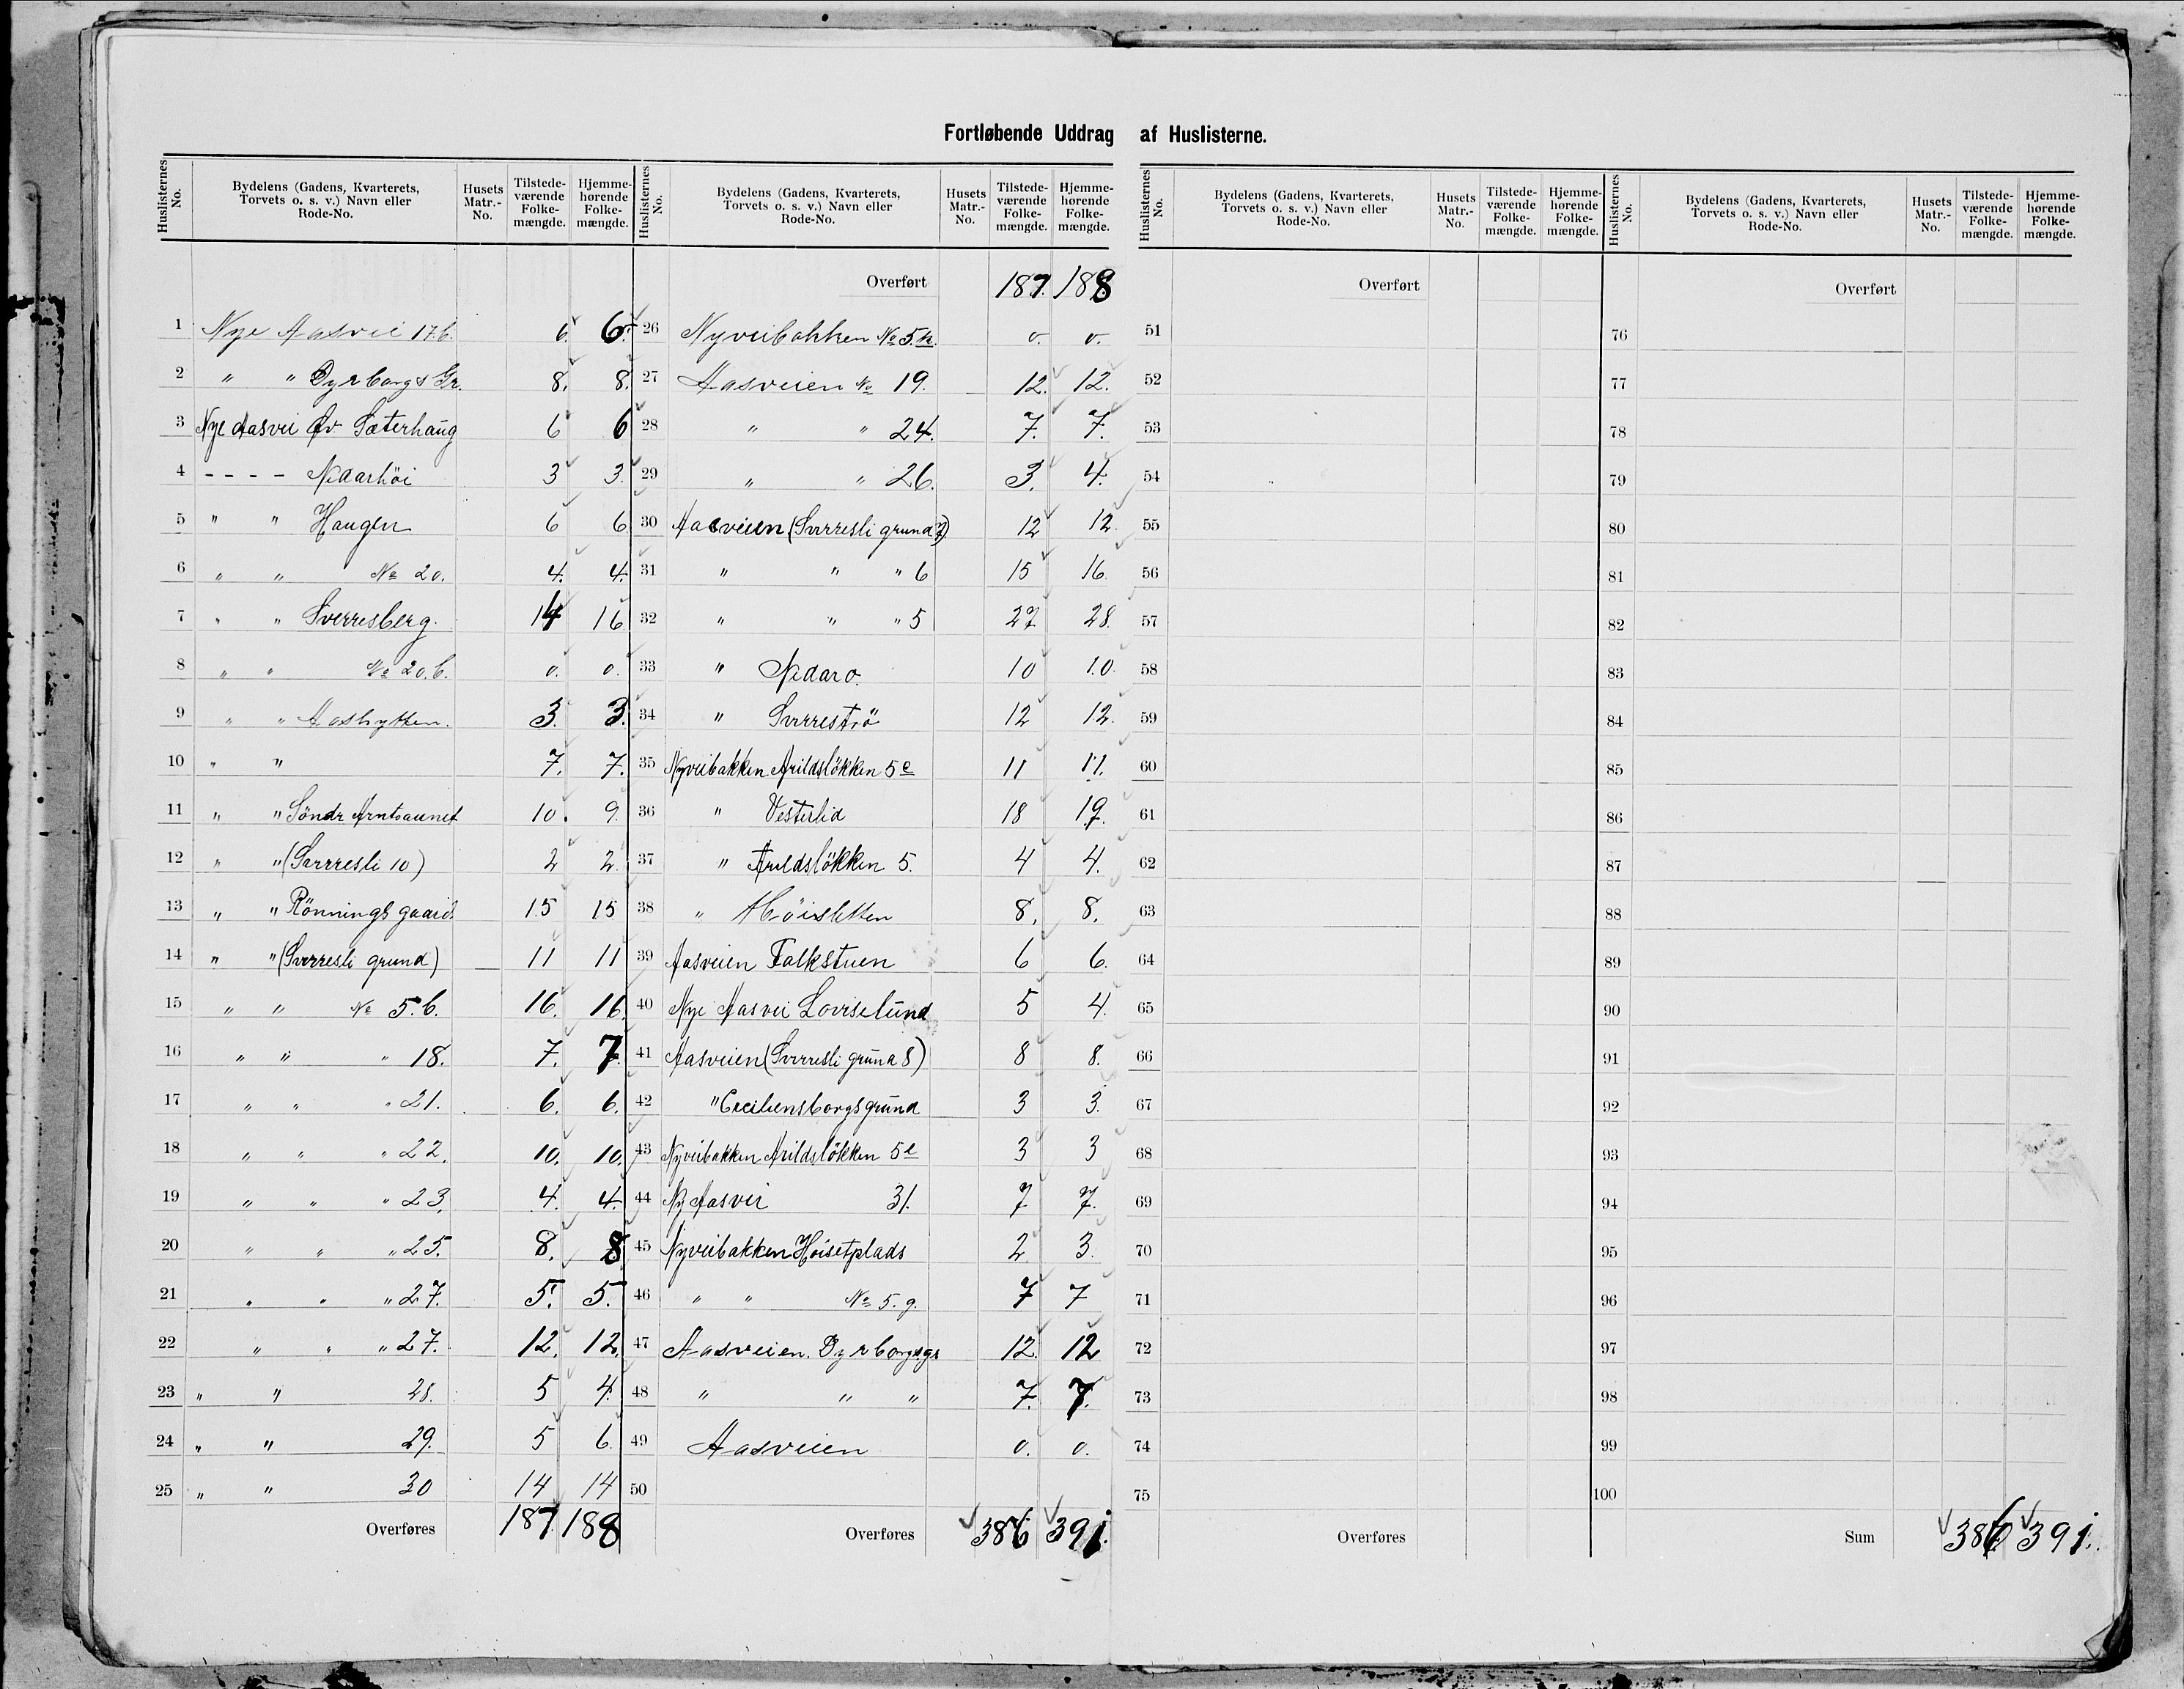 Fortløbende Uddrag af Huslisterne.
Huslisternes No. Bydelens (Gadens, Kvarterets, Torvets o. s. v.) Navn eller Rode-No. Husets Matr.-No. Tilstedeværende Folkemængde. Hjemmehørende Folkemængde.
1 Nye Aasvei 17b. 6. 6.
2 " " Dyrborgs Gr. 8. 8.
3 Nye Aasvei Øv Sæterhaug 6 6
4 - - - - Nidarhöi 3 3.
5 " " Haugen 6 6
6 " " No 20. 4. 4.
7 " " Sverresberg. 14 16
8 " " No 20.b. 0. 0.
9 " " Aashytten. 3. 3.
10 " " 7. 7.
11 " " Söndr Arntsaunet 10. 9.
12 " " (Sverresli 10) 2 2.
13 " " Rönnings gaard 15 15
14 " " (Sverresli grund) 11 11
15 " " No 5.b. 16. 16.
16 " " " 18. 7. 7.
17 " " " 21. 6. 6.
18 " " " 22. 10. 10.
19 " " " 23. 4. 4.
20 " " " 25. 8. 8
21 " " " 27. 5. 5.
22 " " " 27. 12. 12.
23 " " 28. 5 4.
24 " " 29. 5 6.
25 " " 30 14 14
Overføres 187. 188
Huslisternes No. Bydelens (Gadens, Kvarterets, Torvets o. s. v.) Navn eller Rode-No. Husets Matr.-No. Tilstedeværende Folkemængde. Hjemmehørende Folkemængde.
Overført 187. 188
26 Nyveibakken No 5. 0. 0.
27 Aasveien No 19. 12. 12.
28 " " 24. 7. 7.
29 " " 26. 3. 4.
30 Aasveien (Sverresli grund 7) 12 12.
31 " " " 6 15 16.
32 " " " 5 27 28.
33 " Nidaro. 10 10.
34 " Sverreströ 12 12.
35 Nyveibakken Arildslökken 5c 11 11.
36 " Vesterlid 18 19.
37 " Arildslökken 5. 4 4.
38 " Höisletten 8. 8.
39 Aasveien Falkstuen 6 6.
40 Nye Aasvei Loviselund 5 4.
41 Aasveien (Sverresli grund 8) 8 8.
42 " Ceciliensborgs grund 3 3.
43 Nyveibakken Arildslökken 5e 3 3
44 Ny Aasvei 31. 7 7.
45 Nyveibakken Höisetplads 2 3.
46 " " No 5. g. 7 7
47 Aasveien. Dyrborgsgr 12. 12
48 " " " 7. 7.
49 Aasveien 0. 0.
50
Overføres 386 391.
Huslisternes No. Bydelens (Gadens, Kvarterets, Torvets o. s. v.) Navn eller Rode-No. Husets Matr.-No. Tilstedeværende Folkemængde. Hjemmehørende Folkemængde.
Overført
51
52
53
54
55
56
57
58
59
60
61
62
63
64
65
66
67
68
69
70
71
72
73
74
75
Overføres
Huslisternes No. Bydelens (Gadens, Kvarterets, Torvets o. s. v.) Navn eller Rode-No. Husets Matr.-No. Tilstedeværende Folkemængde. Hjemmehørende Folkemængde.
Overført
76
77
78
79
80
81
82
83
84
85
86
87
88
89
90
91
92
93
94
95
96
97
98
99
100
Sum 386 391.